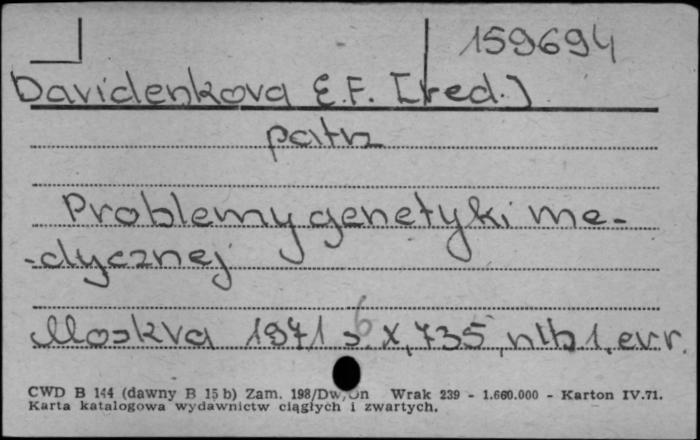 159694
Davidenkova E.F. [red.]
patrz
Problemy genetyki me-
-dycznej
Moskva 1971 s. X, 735, nlb 1, err.
6
CWD B 144 (dawny B 15 b) Zam. 198/Dw/Jn Wrak 239 - 1.660.000 - Karton IV.71.
Karta katalogowa wydawnictw ciągłych i zwartych.